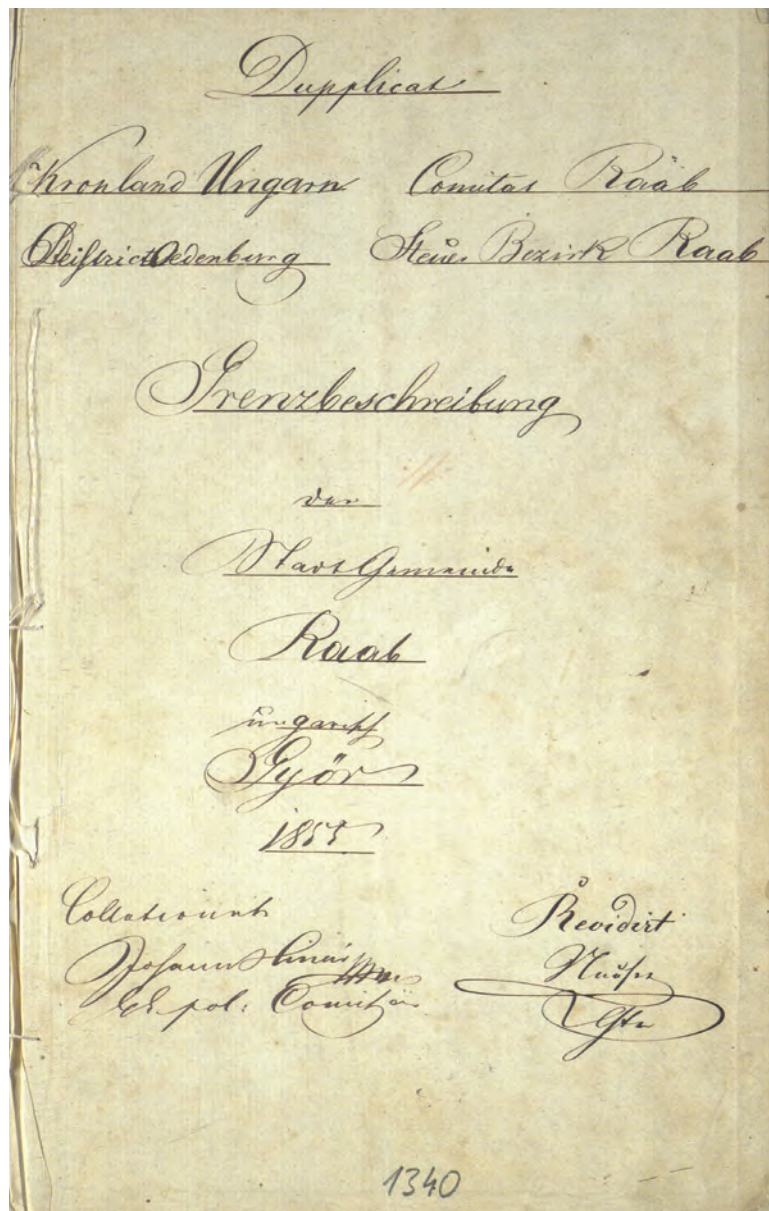 Dupplicat
Kronland Ungarn Comitat Raab
District Oedenburg Steuer Bezirk Raab
Grenzbeschreibung
der
Stadt Gemeinde
Raab
ungarisch
Győr
1855
Collationirt Revidirt
Johann
pol: 
1340